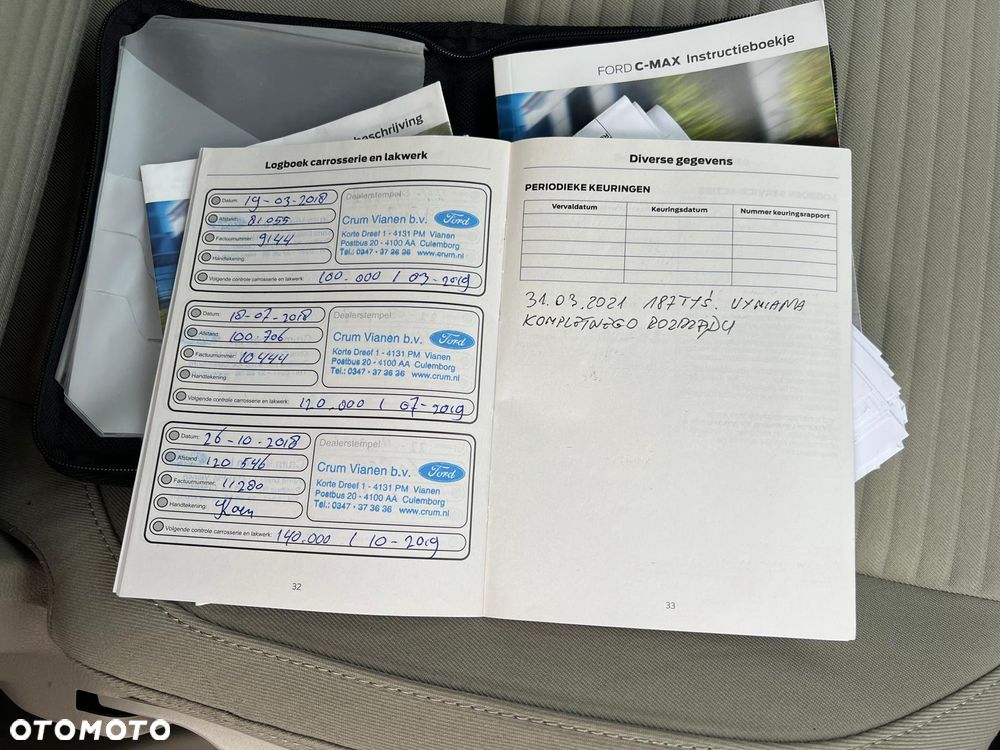 FORD C-MAX Instructieboekje
beschrijving
Logboek carrosserie en lakwerk
Datum: 19-03-2018
Afstand: 81055
Factuurnummer: 9144
Handtekening:
Dealerstempel
Crum Vianen b.v. Ford
Korte Dreef 1 - 4131 PM Vianen
Postbus 20 - 4100 AA Culemborg
Tel.: 0347 - 37 36 36 www.crum.nl
Volgende controle carrosserie en lakwerk: 100.000 / 03-2019
Datum: 18-07-2018
Afstand: 100.706
Factuurnummer: 10444
Handtekening:
Dealerstempel
Crum Vianen b.v. Ford
Korte Dreef 1 - 4131 PM Vianen
Postbus 20 - 4100 AA Culemborg
Tel.: 0347 - 37 36 36 www.crum.nl
Volgende controle carrosserie en lakwerk: 120.000 / 07-2019
Datum: 26-10-2018
Afstand: 120 546
Factuurnummer: 11280
Handtekening:
Dealerstempel
Crum Vianen b.v. Ford
Korte Dreef 1 - 4131 PM Vianen
Postbus 20 - 4100 AA Culemborg
Tel.: 0347 - 37 36 36 www.crum.nl
Volgende controle carrosserie en lakwerk: 140.000 / 10-2019
32
Diverse gegevens
PERIODIEKE KEURINGEN
Vervaldatum Keuringsdatum Nummer keuringsrapport
31.03.2021 187TYŚ. WYMIANA
KOMPLETNEGO ROZRZĄDU
33
OTOMOTO